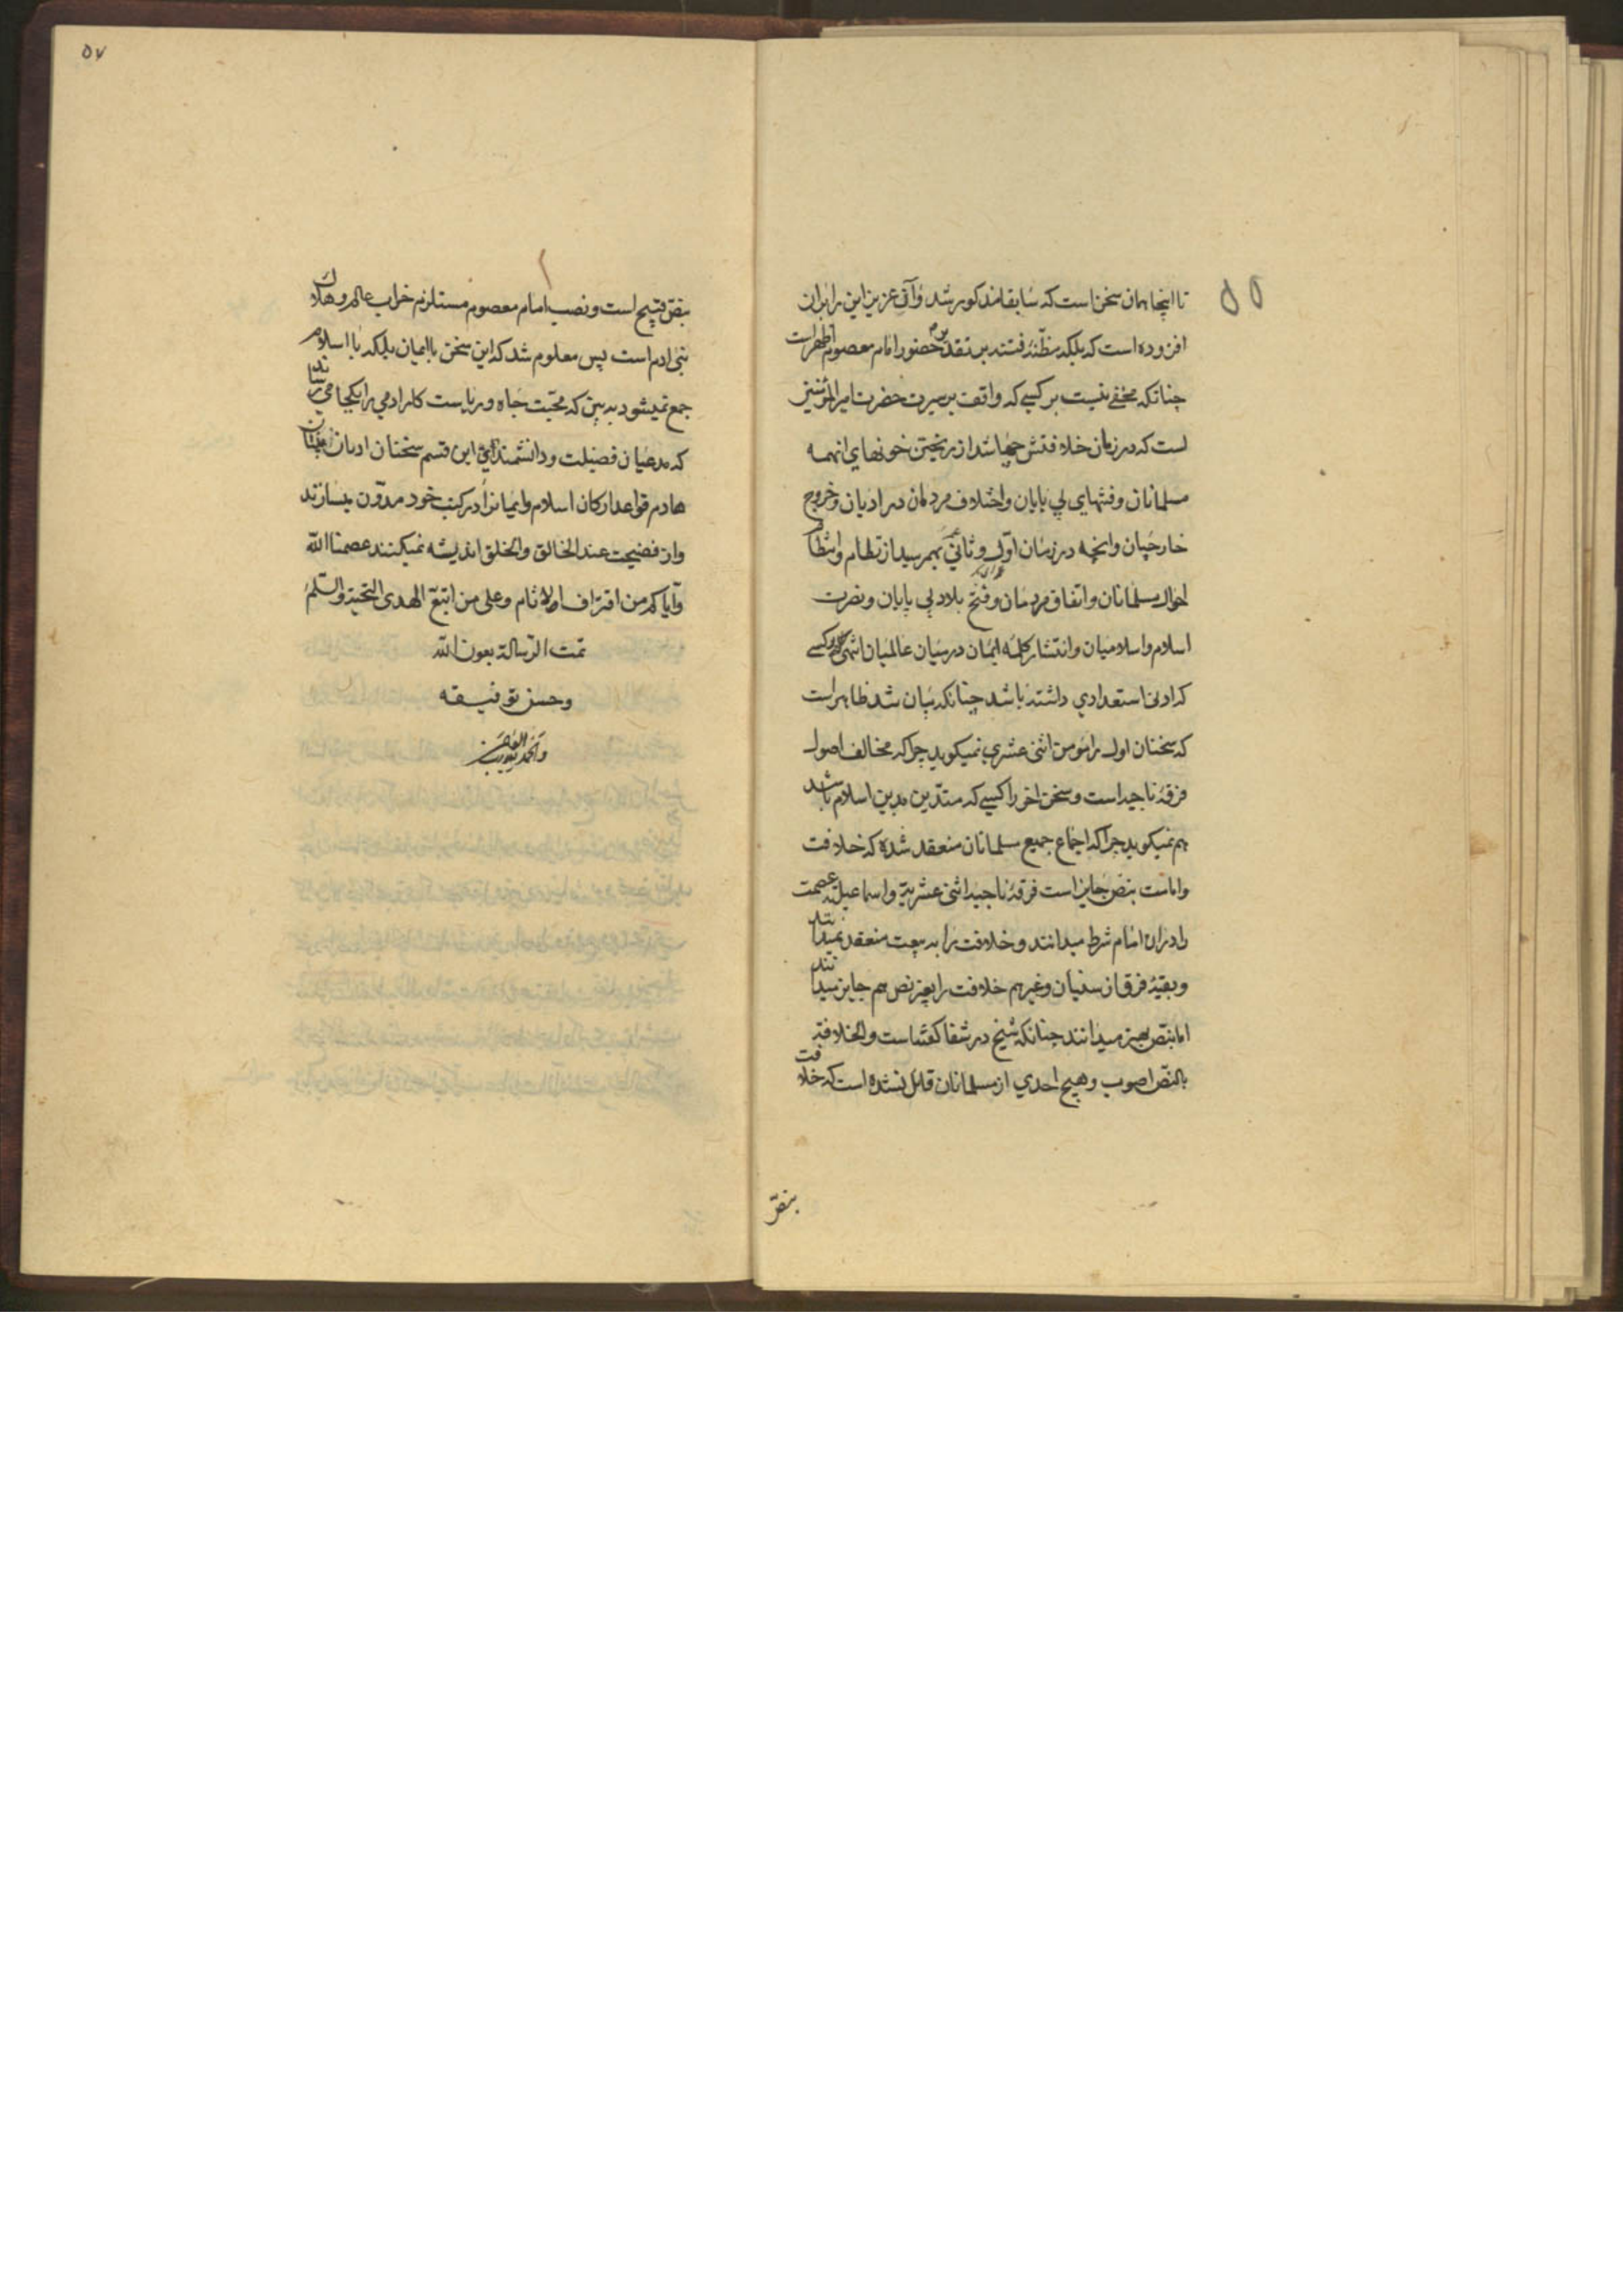 تا اینجا همان سخن است که سابقا مذکور شد و آن عزیز این را بر ان
افزوده است که بلکه مظنهٔ فتنه بر تقدیر حضور امام معصوم اظهر است
چنانکه مخفی نیست بر کسی که واقف بر سیرت حضرت امیر المؤمنین
است که در زمان خلافتش چها شد از ریختن خونهای انهمه
مسلمانان و فتنهای بی پایان و اختلاف مردمان در ادیان و خروج
خارجیان و انچه در زمان اول و ثانی بهم رسید از نظام و انتظام
احوال مسلمانان و اتفاق مردمان و فتح بلاد بی پایان و نصرت
اسلام و اسلامیان و انتشار کلمهٔ ایمان در میان عالمیان انتهی کلامه و کسی
که ادنی استعدادی داشته باشد چنانکه بیان شد ظاهر است
که سخنان اول را مومن اثنی عشری نمیکوید چرا که مخالف اصول
فرقهٔ ناجیه است و سخن اخر را کسی که متدین بدین اسلام باشد
هم نمیکوید چرا که اجماع جمیع مسلمانان منعقد شده که خلافت
و امامت بنص جایز است فرقهٔ ناجیه اثنی عشریه و اسماعیلیه عصمت
را در ان امام شرط میدانند و خلافت را به بیعت منعقد نمیدانند
و بقیهٔ فرق از سنیان و غیرهم خلافت را بغیر نص هم جایز میدانند
اما بنص بهتر میدانند چنانکه شیخ در شفا کفته است والخلافة
بالنص اصوب و هیچ احدی از مسلمانان قائل نشده است که خلافت
بنص
۵۷
بنص قبیح است و نصب امام معصوم مستلزم خرابی عالم و هلاک
بنی ادم است پس معلوم شد که این سخن با ایمان بلکه با اسلام
جمع نمیشود به بین که محبت جاه و ریاست کار ادمی را بکجا میرساند
که مدعیان فضیلت و دانشمندی این قسم سخنان
هادم قواعد ارکان اسلام و ایمانرا در کتب خود مدون میسازند
و از فضیحت عند الخالق والخلق اندیشه نمیکنند عصمنا الله
وایاکم من اقتراف الاثام وعلی من اتبع الهدی التحیة والسلم
تمت الرسالة بعون الله
وحسن توفیقه